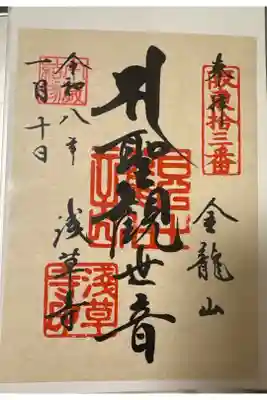 奉拝
坂東拾三番
金龍山
聖観世音
浅草寺
令和八年
月十日